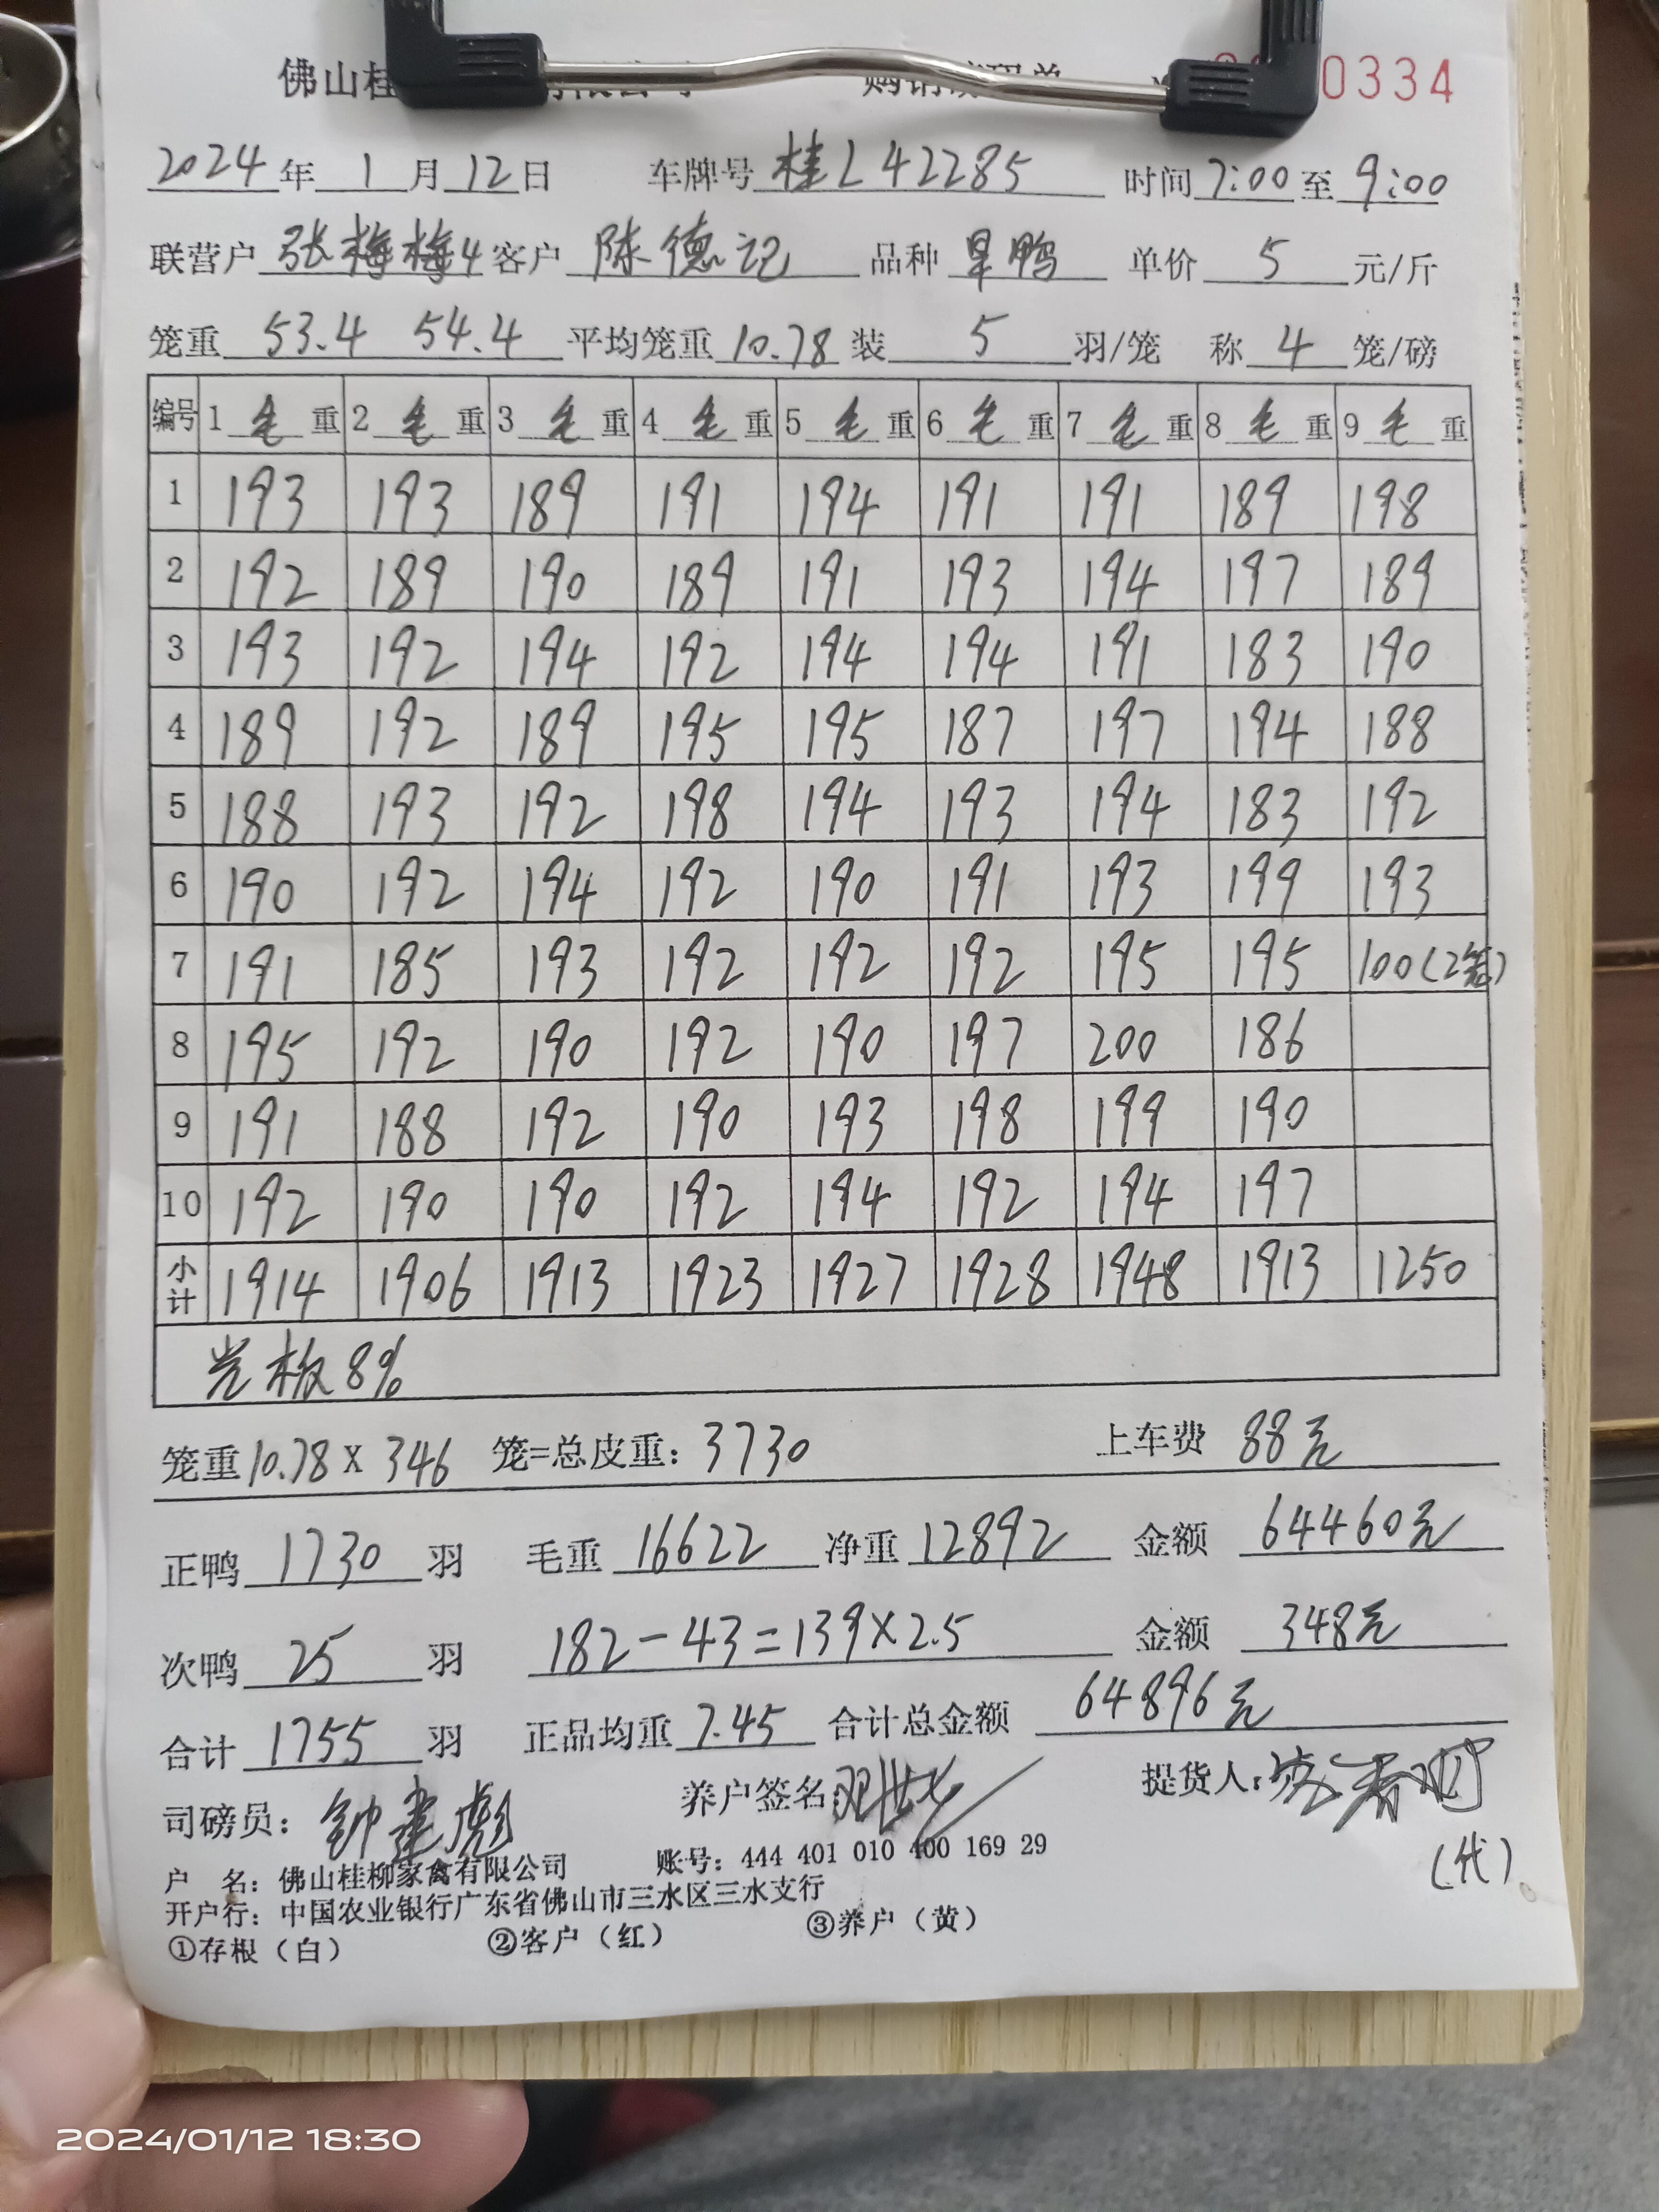 佛山桂
0334
2024年1月12日 车牌号桂L42285 时间7:00至9:00
联营户张梅梅4客户陈德记 品种旱鸭 单价5元/斤
笼重53.4 54.4平均笼重10.78装5羽/笼 称4笼/磅
编号 1毛重 2毛重 3毛重 4毛重 5毛重 6毛重 7毛重 8毛重 9毛重
1 193 193 189 191 194 191 191 189 198
2 192 189 190 189 191 193 194 197 189
3 193 192 194 192 194 194 191 183 190
4 189 192 189 195 195 187 197 194 188
5 188 193 192 198 194 193 194 183 192
6 190 192 194 192 190 191 193 199 193
7 191 185 193 192 192 192 195 195 100(2笼)
8 195 192 190 192 190 197 200 186
9 191 188 192 190 193 198 199 190
10 192 190 190 192 194 192 194 197
小计 1914 1906 1913 1923 1927 1928 1948 1913 1250
光板8%
笼重10.78X346笼=总皮重:3730 上车费88元
正鸭1730羽 毛重16622净重12892 金额64460元
次鸭25羽 182-43=139×2.5 金额348元
合计1755羽 正品均重7.45合计总金额64896元
司磅员:钟建彪 养户签名: 提货人:
(代)
户 名:佛山桂柳家禽有限公司 账号:444 401 010 400 169 29
开户行:中国农业银行广东省佛山市三水区三水支行
①存根(白) ②客户(红) ③养户(黄)
2024/01/12 18:30